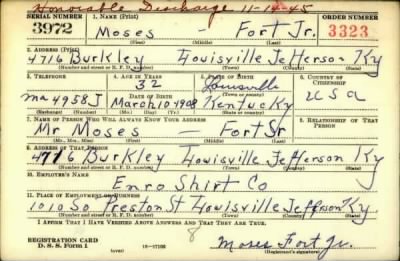 Honorable Discharge 11-14-45
SERIAL NUMBER 1. NAME (Print) ORDER NUMBER
3972 Moses - Fort Jr. 3323
(First) (Middle) (Last)
2. ADDRESS (Print)
4716 Burkley Louisville Jefferson Ky
(Number and street or R. F. D. number) (Town) (County) (State)
3. TELEPHONE 4. AGE IN YEARS 5. PLACE OF BIRTH 6. COUNTRY OF CITIZENSHIP
32 Louisville
DATE OF BIRTH (Town or county)
Ma 4958J March 10 1908 Kentucky USA
(Exchange) (Number) (Mo.) (Day) (Yr.) (State or country)
7. NAME OF PERSON WHO WILL ALWAYS KNOW YOUR ADDRESS 8. RELATIONSHIP OF THAT PERSON
Mr Moses - Fort Sr
(Mr., Mrs., Miss) (First) (Middle) (Last)
9. ADDRESS OF THAT PERSON
4716 Burkley Louisville Jefferson Ky
(Number and street or R. F. D. number) (Town) (County) (State)
10. EMPLOYER'S NAME
Enro Shirt Co
11. PLACE OF EMPLOYMENT OR BUSINESS
1010 So Preston St Louisville Jefferson Ky
(Number and street or R. F. D. number) (Town) (County) (State)
I AFFIRM THAT I HAVE VERIFIED ABOVE ANSWERS AND THAT THEY ARE TRUE.
REGISTRATION CARD
D. S. S. Form 1 (over) 16-17105 8 Moses Fort Jr.
(Registrant's signature)